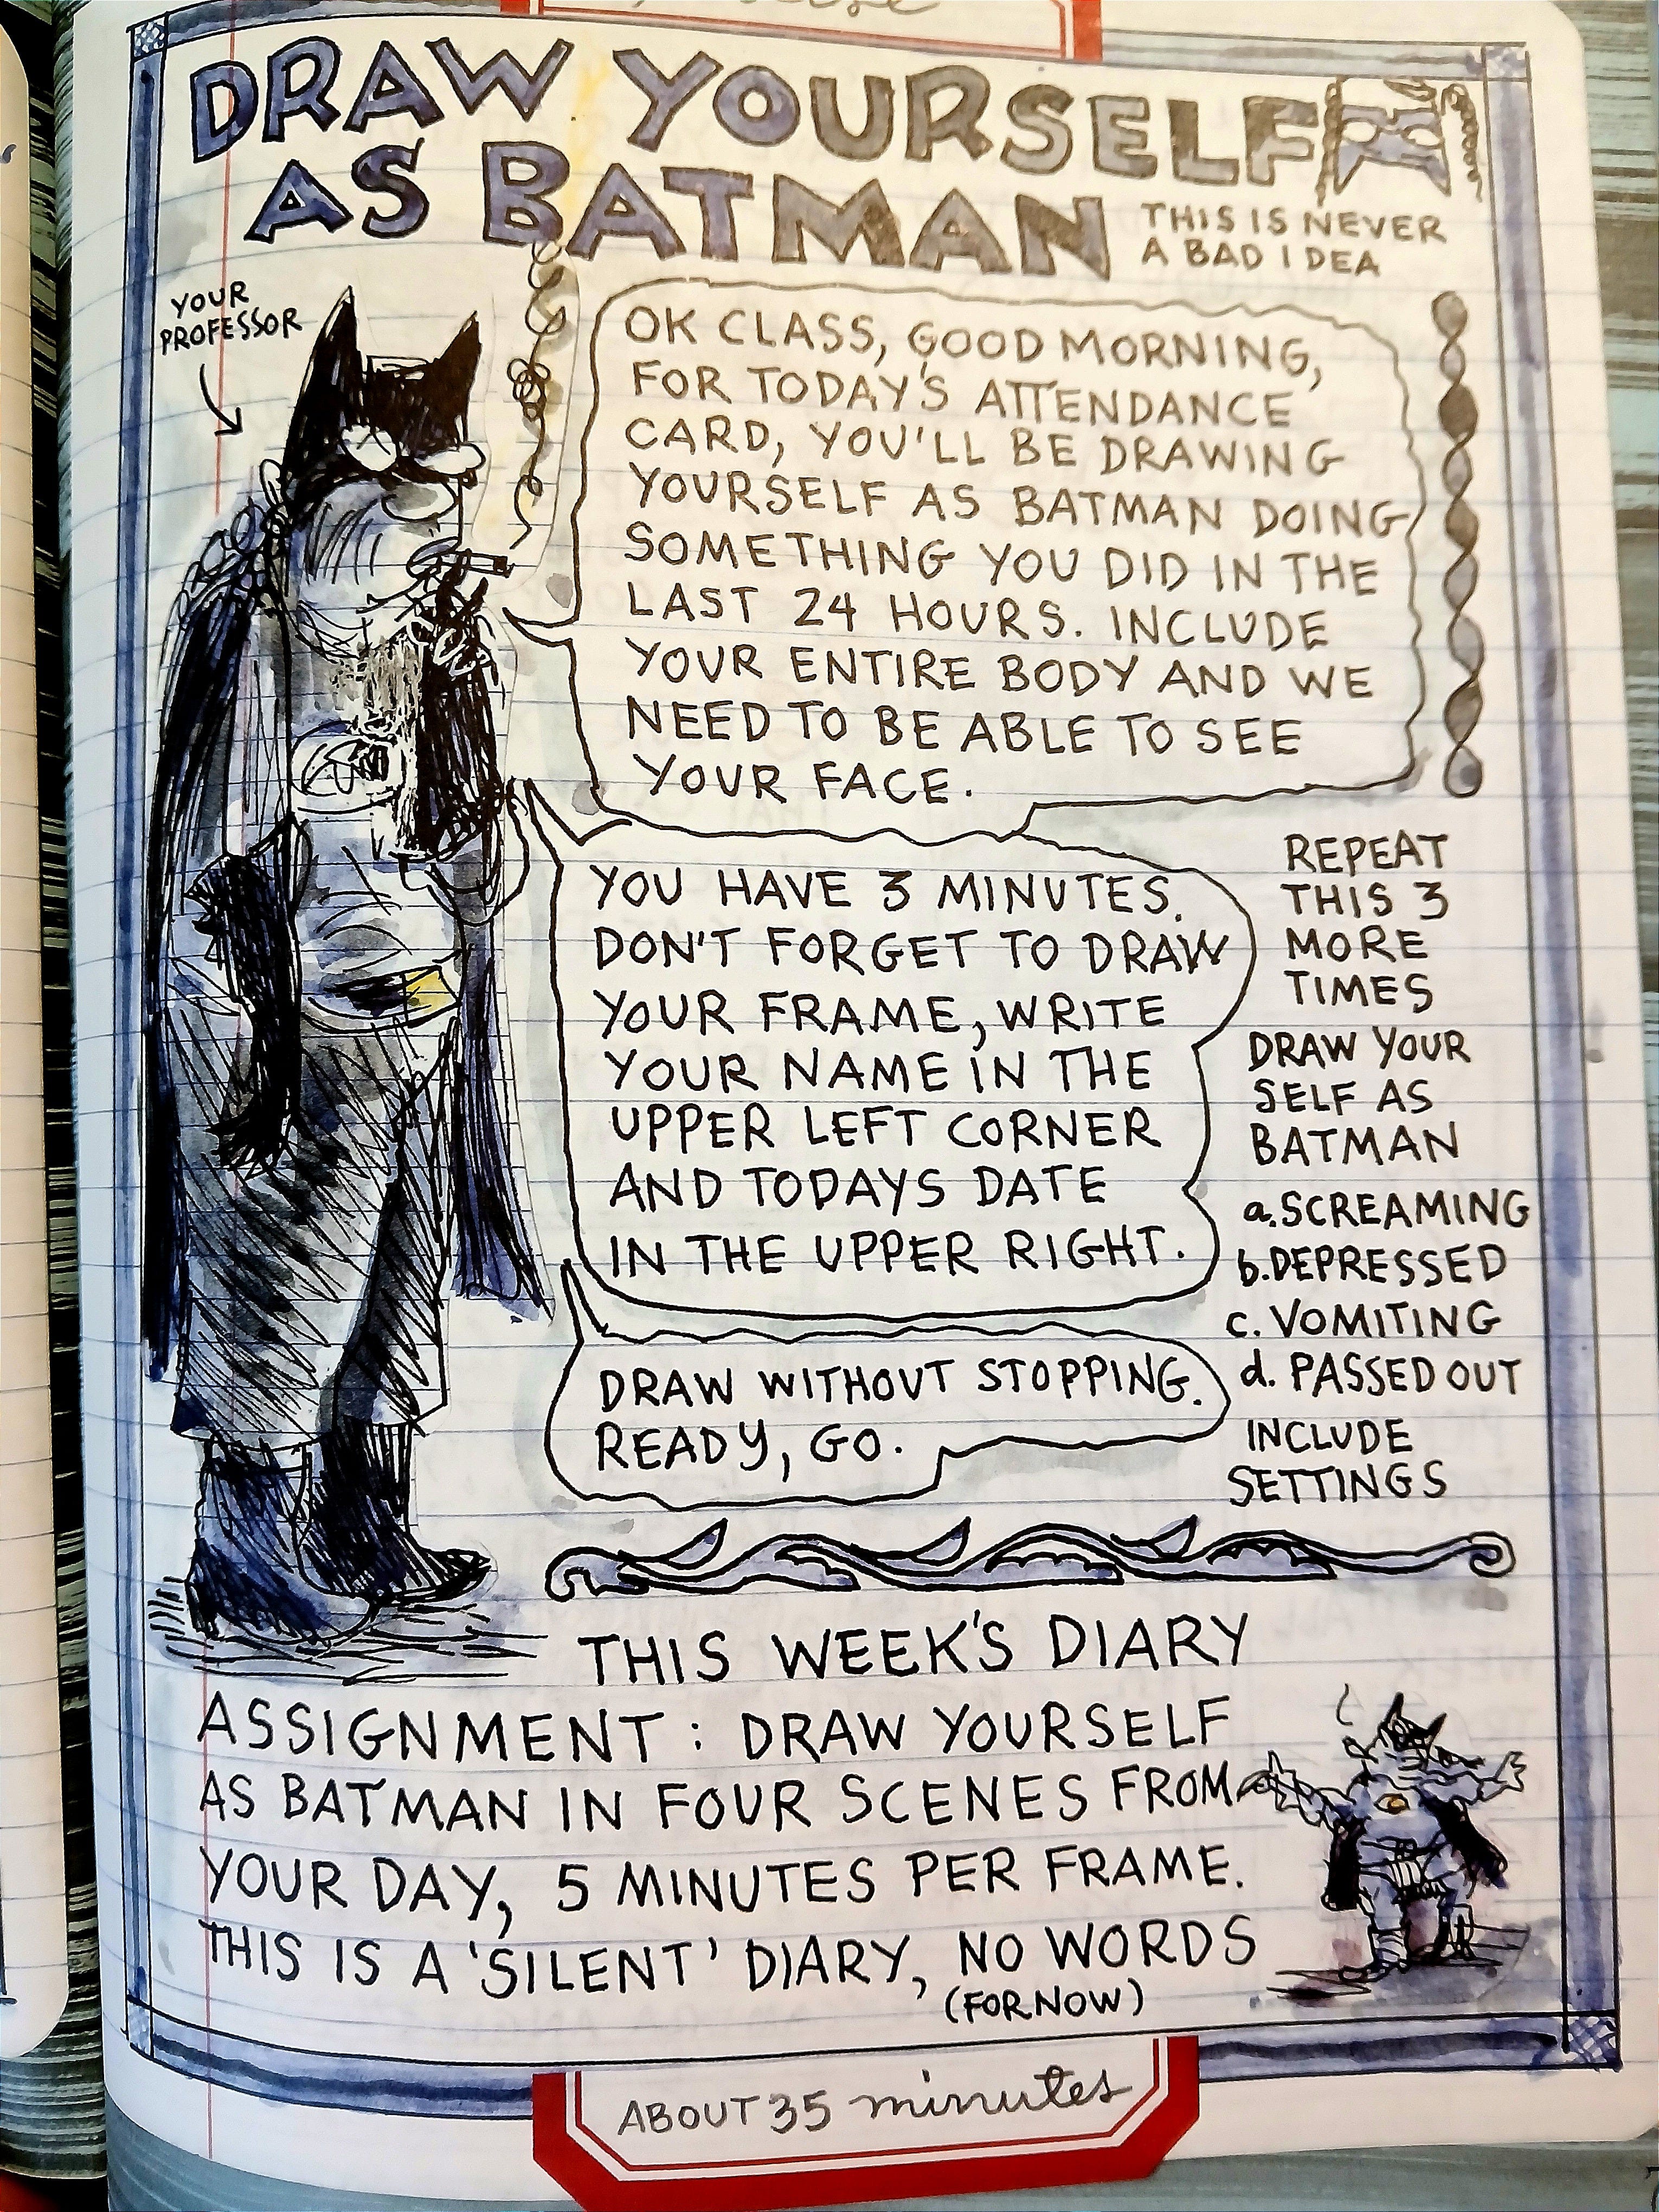 DRAW YOURSELF
AS BATMAN
THIS IS NEVER
A BAD IDEA
YOUR
PROFESSOR
OK CLASS, GOOD MORNING,
FOR TODAY'S ATTENDANCE
CARD, YOU'LL BE DRAWING
YOURSELF AS BATMAN DOING
SOMETHING YOU DID IN THE
LAST 24 HOURS. INCLUDE
YOUR ENTIRE BODY AND WE
NEED TO BE ABLE TO SEE
YOUR FACE.
YOU HAVE 3 MINUTES.
DON'T FORGET TO DRAW
YOUR FRAME, WRITE
YOUR NAME IN THE
UPPER LEFT CORNER
AND TODAYS DATE
IN THE UPPER RIGHT.
DRAW WITHOUT STOPPING.
READY, GO.
REPEAT
THIS 3
MORE
TIMES
DRAW YOUR
SELF AS
BATMAN
a. SCREAMING
b. DEPRESSED
c. VOMITING
d. PASSED OUT
INCLUDE
SETTINGS
THIS WEEK'S DIARY
ASSIGNMENT: DRAW YOURSELF
AS BATMAN IN FOUR SCENES FROM
YOUR DAY, 5 MINUTES PER FRAME.
THIS IS A 'SILENT' DIARY, NO WORDS
(FOR NOW)
ABOUT 35 minutes